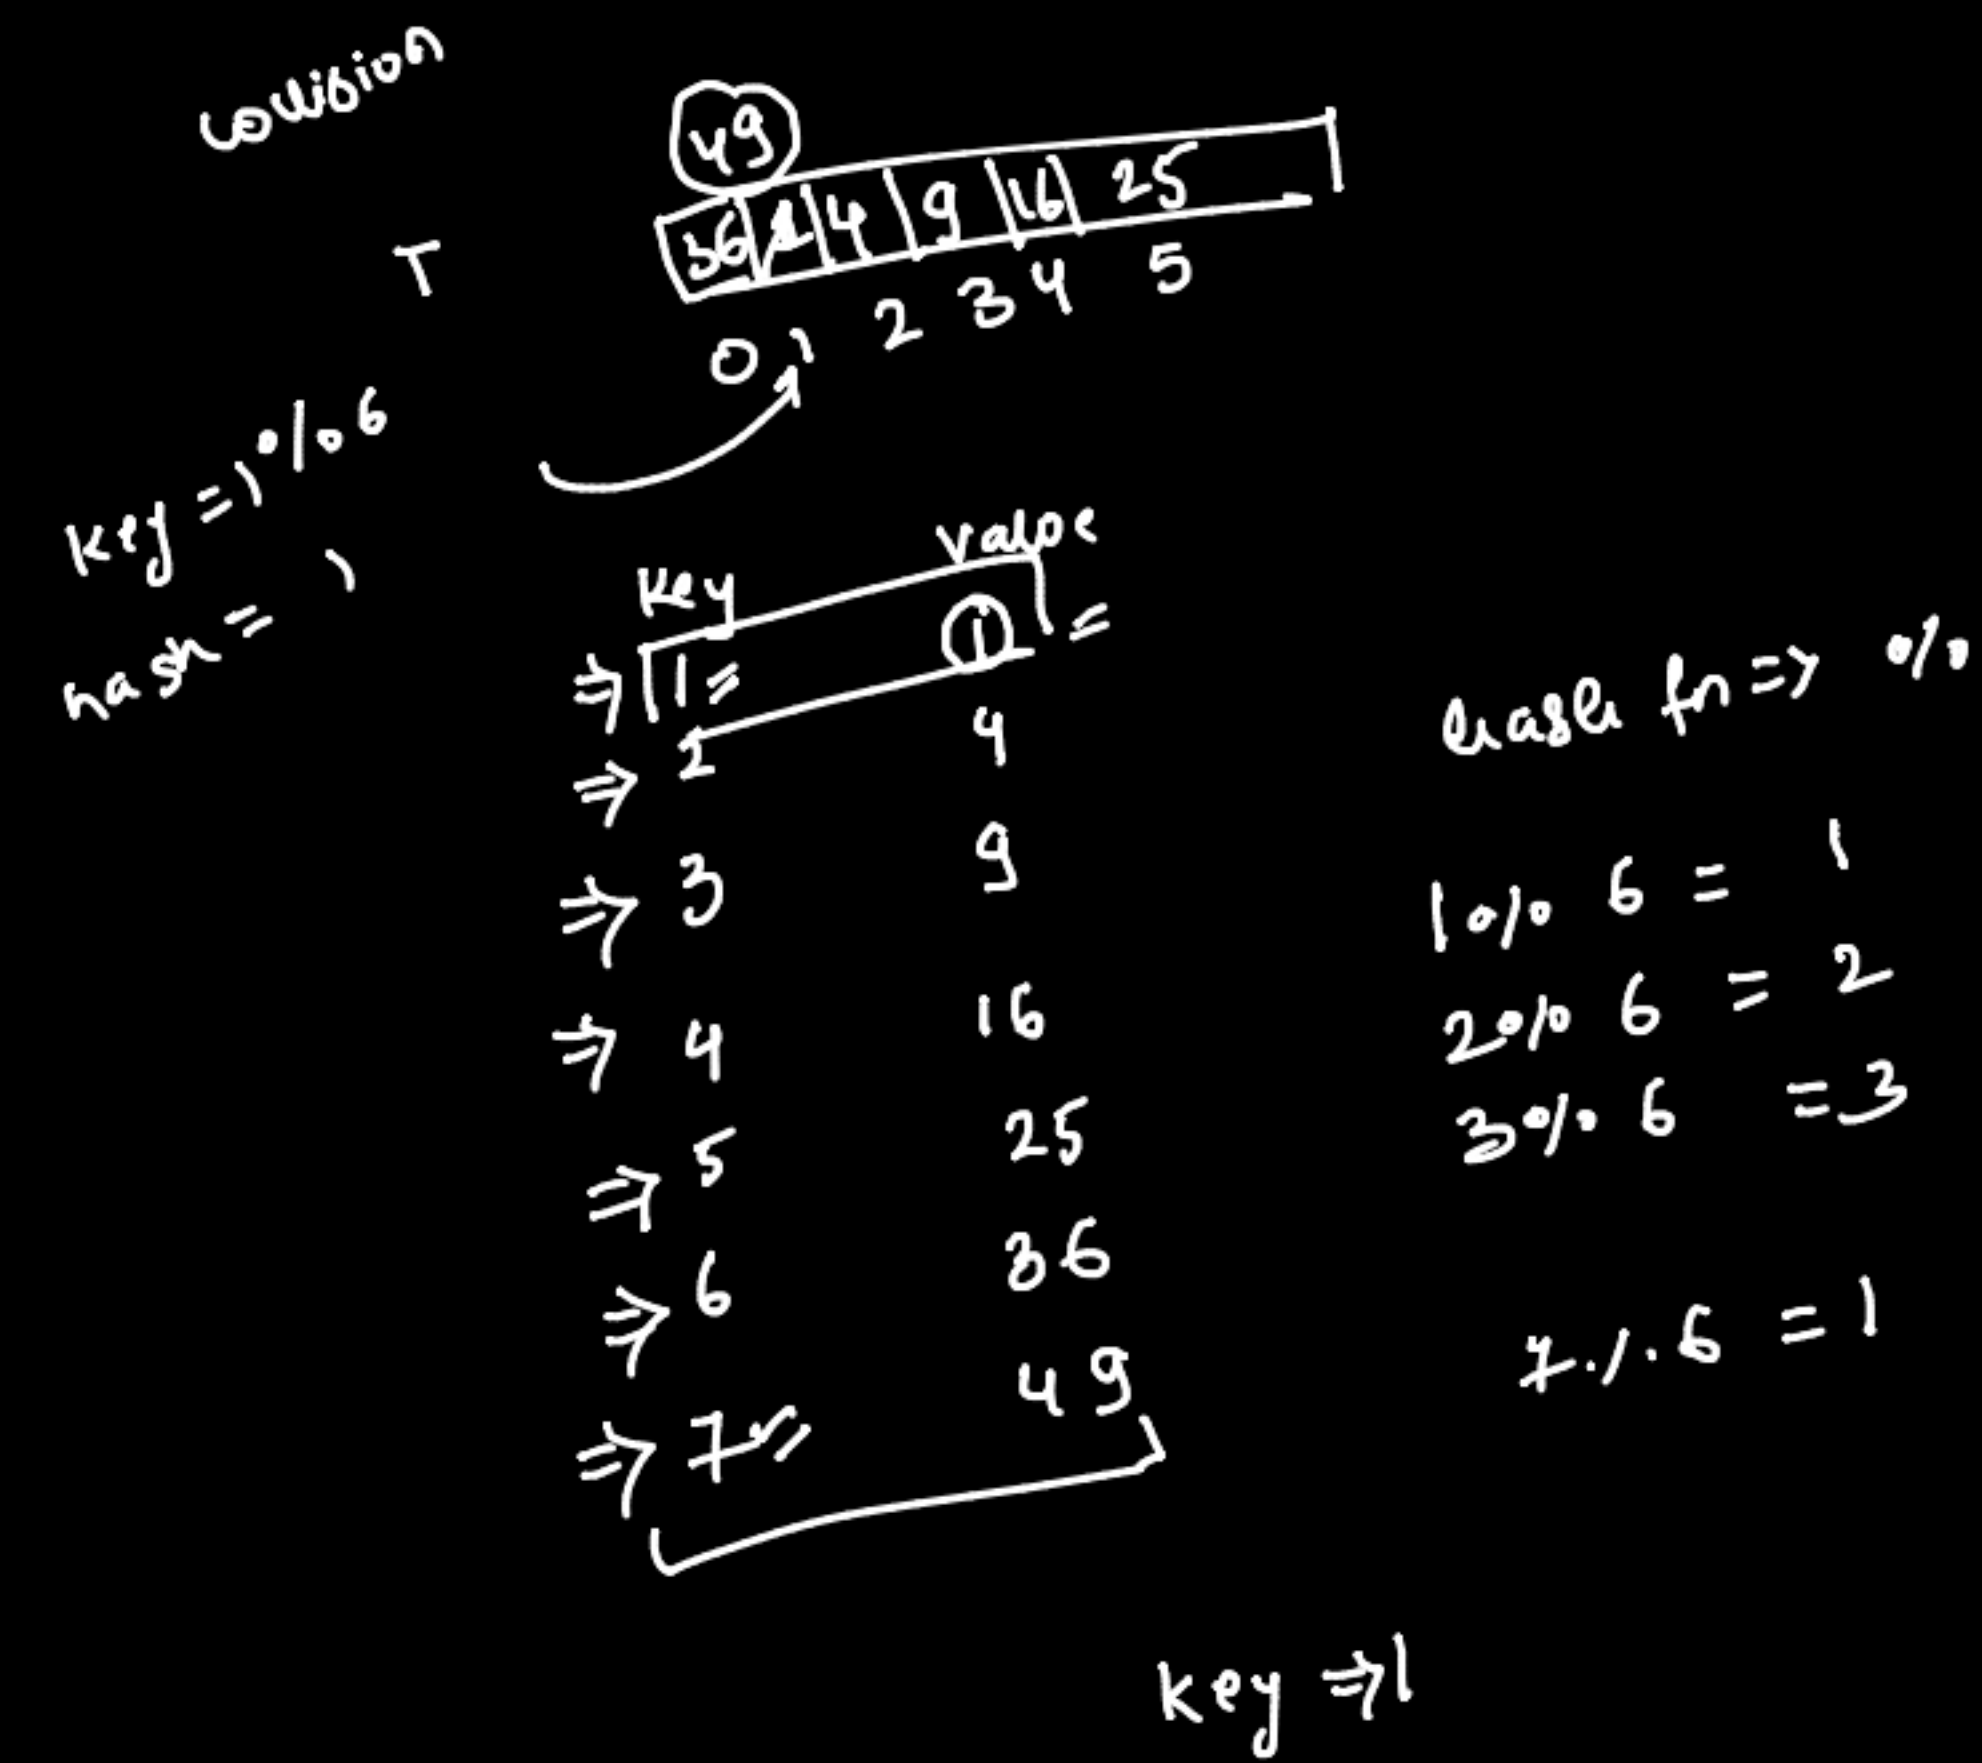 collision
49
T
36 1 4 9 16 25
0 1 2 3 4 5
key = 1 % 6
hash = 1
key value
⇒ 1 = 1 =
⇒ 2 4
⇒ 3 9
⇒ 4 16
⇒ 5 25
⇒ 6 36
⇒ 7 = 49
hash fn => %
1 % 6 = 1
2 % 6 = 2
3 % 6 = 3
7 % 6 = 1
key ⇒ 1